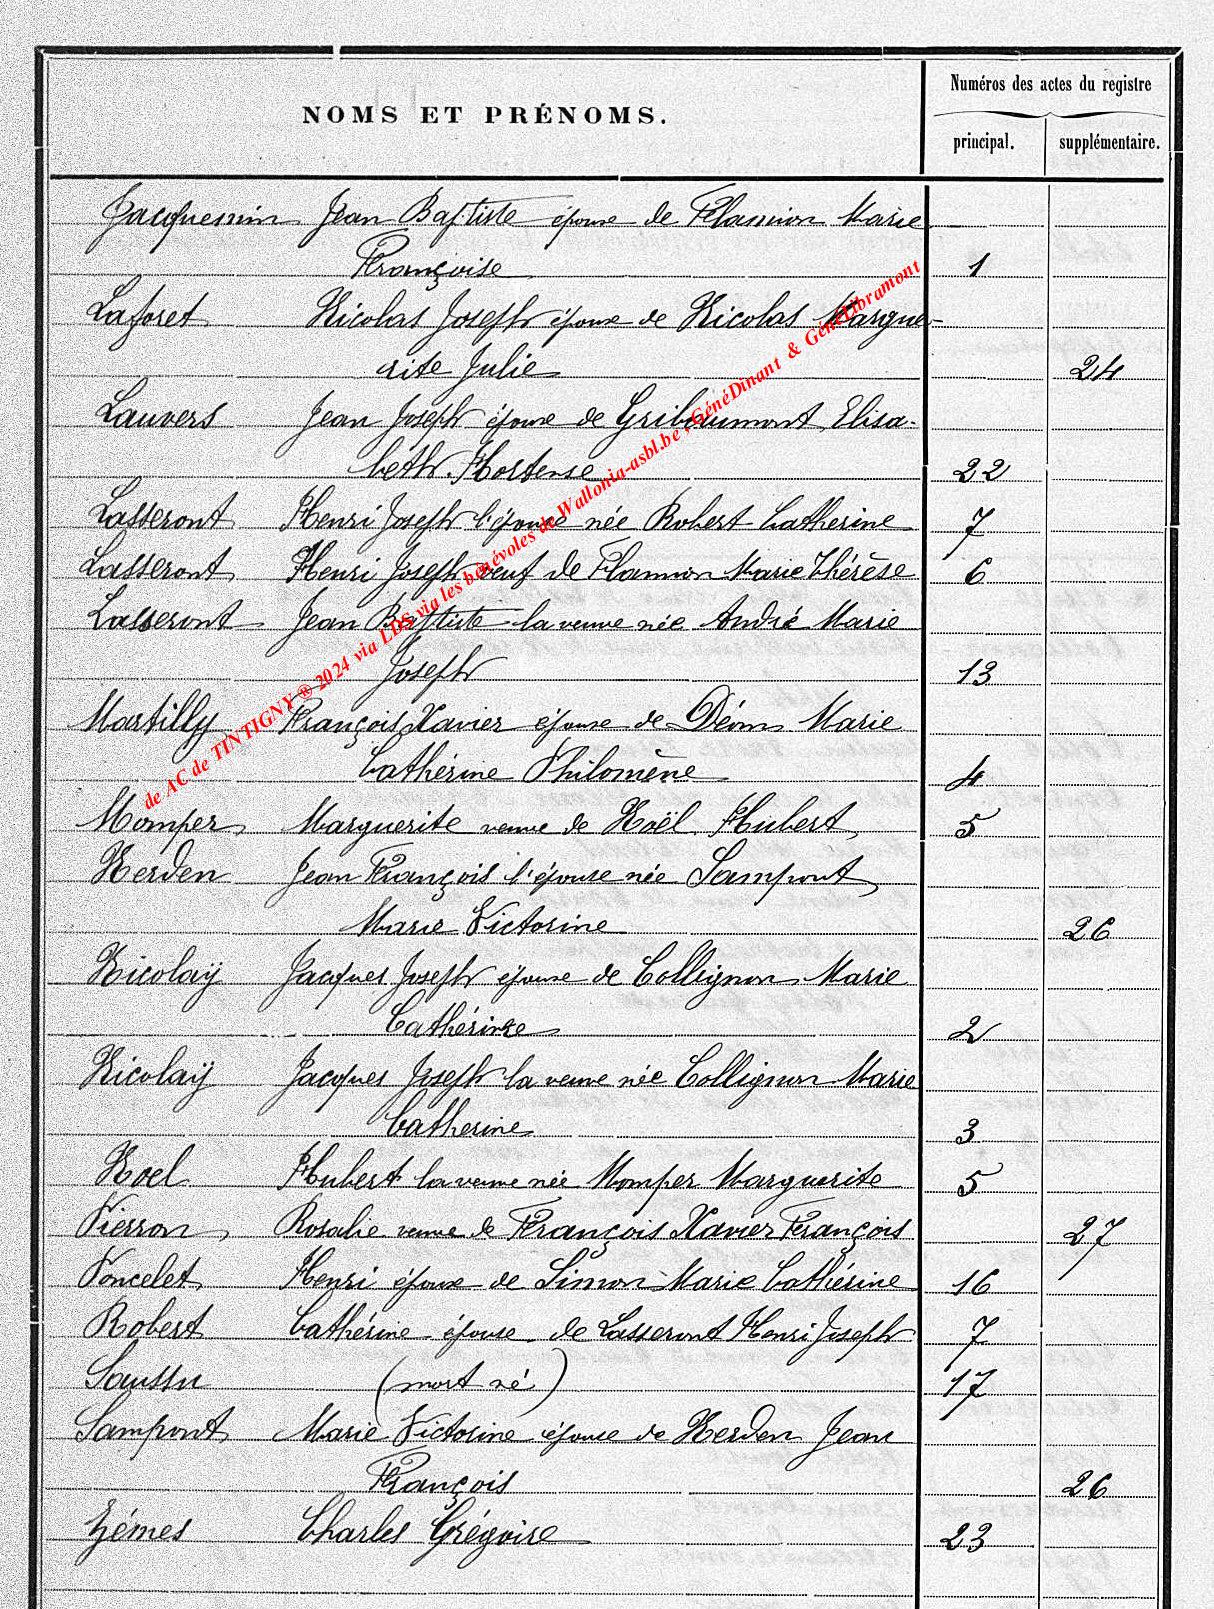 NOMS ET PRÉNOMS.
Numéros des actes du registre
principal.
supplémentaire.
Jacquemin Jean Baptiste époux de Flamion Marie
Françoise 1
Laforet Nicolas Joseph époux de Nicolas Margue-
rite Julie 24
Lauvers Jean Joseph époux de Gribaumont Elisa-
beth Hortense 22
Lasseront Henri Joseph l'épouse née Robert Catherine 7
Lasseront Henri Joseph veuf de Flamion Marie Thérèse 6
Lasseront Jean Baptiste la veuve née André Marie
Joseph 13
Martilly François Xavier époux de Déom Marie
Cathérine Philomène 4
Momper Marguerite veuve de Noël Hubert 5
Nerden Jean François l'épouse née Sampont
Marie Victorine 26
Nicolaÿ Jacques Joseph époux de Collignon Marie
Cathérine 2
Nicolaÿ Jacques Joseph la veuve née Collignon Marie
Catherine 3
Noel Hubert la veuve née Momper Marguerite 5
Pierson Rosalie veuve de François Xavier François 27
Poncelet Henri époux de Simon Marie Cathérine 16
Robert Cathérine épouse de Lasseront Henri Joseph 7
Saussu (mort né) 17
Sampont Marie Victorine épouse de Nerden Jean
François 26
Zémes Charles Grégoire 23
de AC de TINTIGNY ® 2024 via LDS via les bénévoles de Wallonia-asbl.be, GénéDinant & GénéLibramont